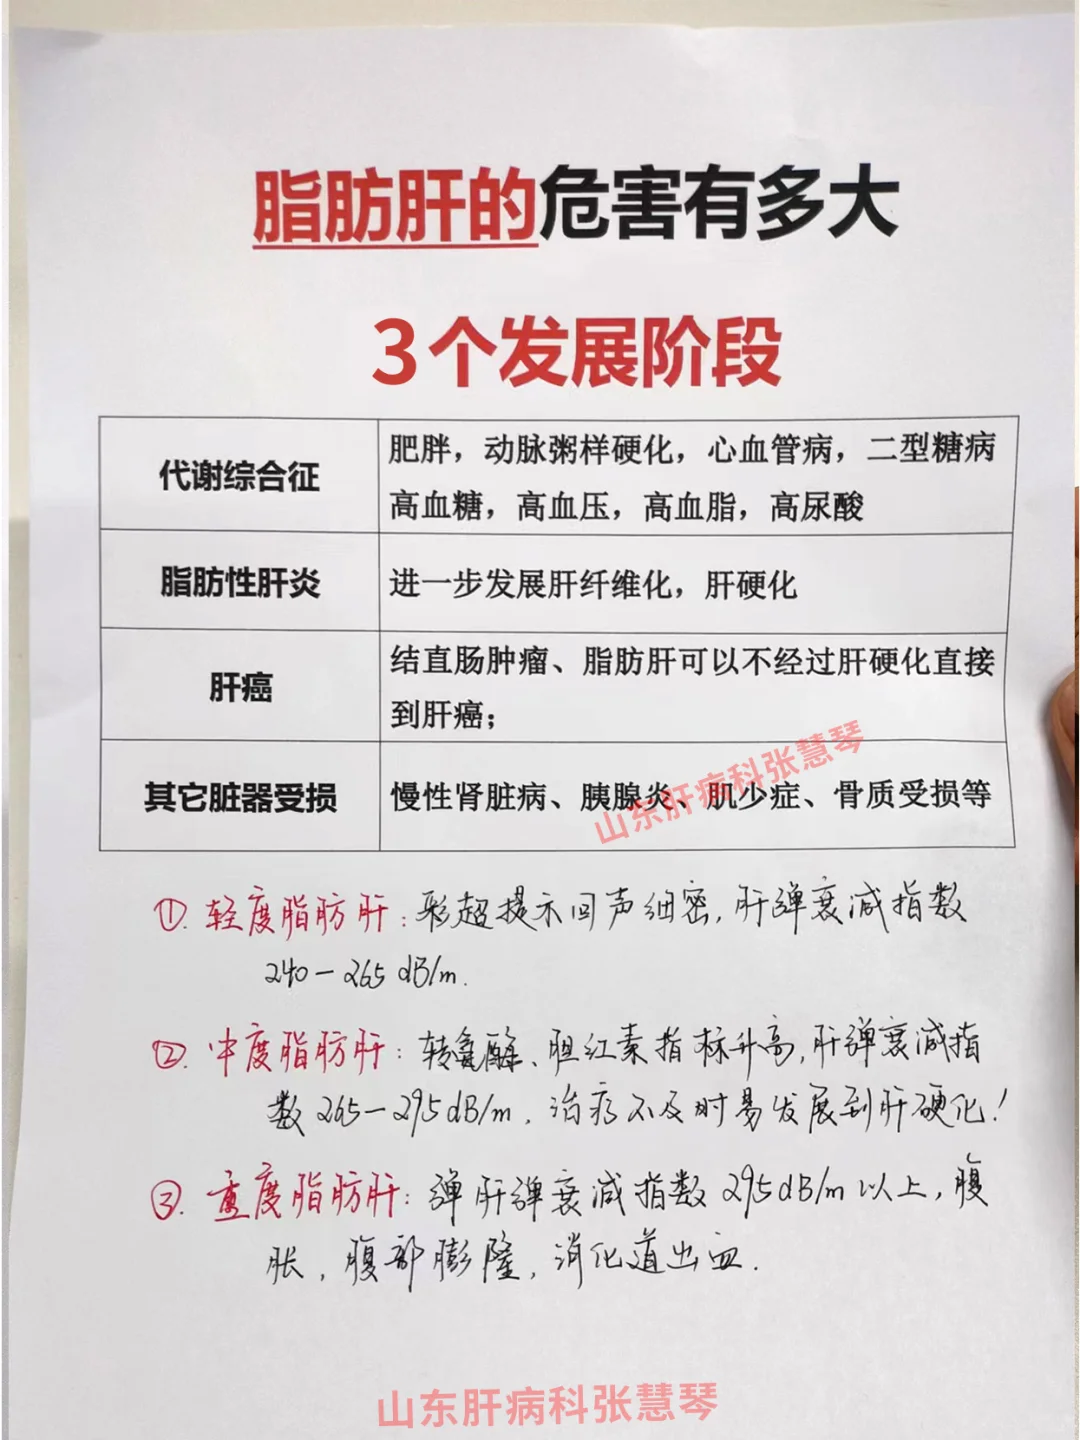 脂肪肝的危害有多大
3个发展阶段
代谢综合征
肥胖，动脉粥样硬化，心血管病，二型糖病
高血糖，高血压，高血脂，高尿酸
脂肪性肝炎
进一步发展肝纤维化，肝硬化
肝癌
结直肠肿瘤、脂肪肝可以不经过肝硬化直接
到肝癌；
其它脏器受损
慢性肾脏病、胰腺炎、肌少症、骨质受损等
山东肝病科张慧琴
①. 轻度脂肪肝：彩超提示回声细密，肝弹衰减指数
240-265 dB/m.
②. 中度脂肪肝：转氨酶、胆红素指标升高，肝弹衰减指
数265-295dB/m，治疗不及时易发展到肝硬化！
③. 重度脂肪肝：弹肝弹衰减指数295dB/m以上，腹
胀，腹部膨隆，消化道出血.
山东肝病科张慧琴